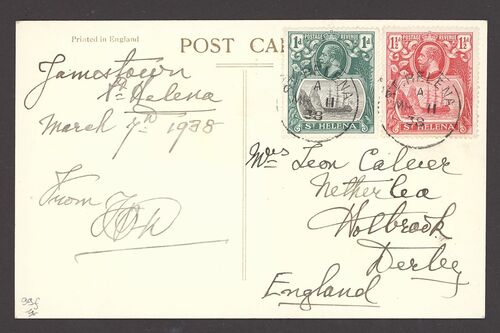 Printed in England
POST CAR
Jamestown
St Helena
March 7th 1938
From
POSTAGE & REVENUE
1d 1d
ST HELENA
POSTAGE & REVENUE
1½d 1½d
ST HELENA
ST. HELENA
A
11
38
ST. HELENA
A
11
38
Mrs Leon Calver
Netherlea
Holbrook
Derby
England